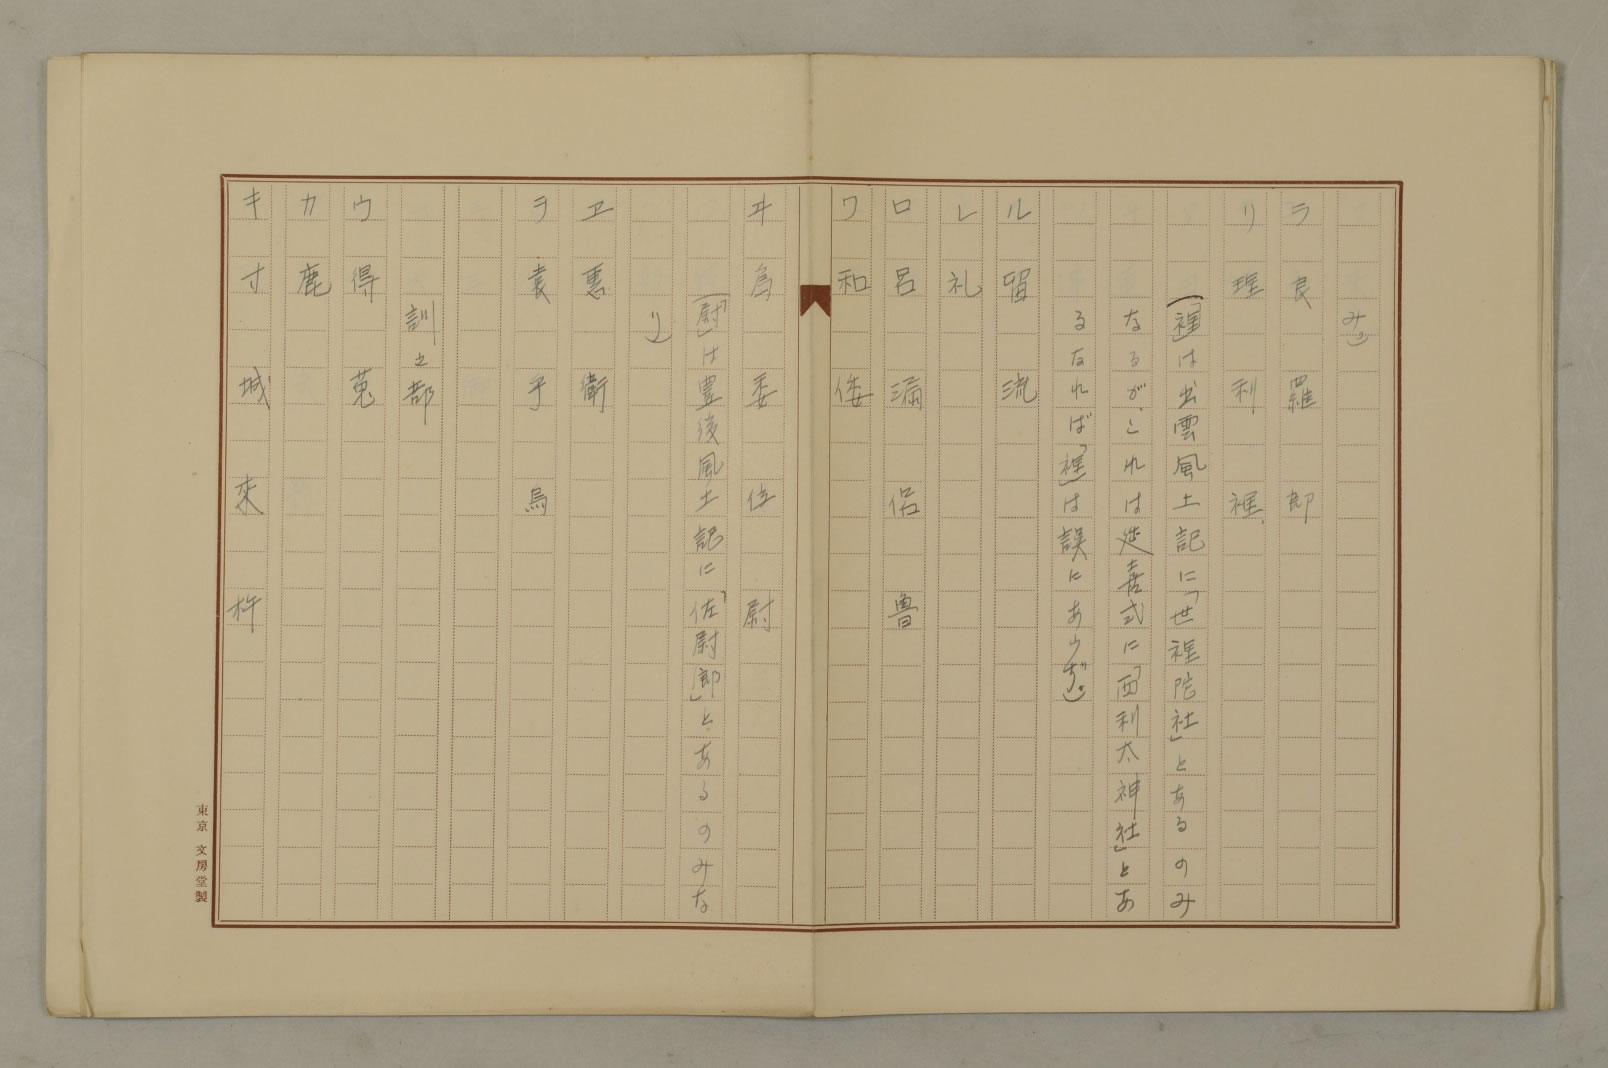 み。)
ラ 良 羅 郎
リ 理 利 裡、
(「裡」は出雲風土記に「世裡陀社」とあるのみ
なるが、これは延喜式に「西利太神社」とあ
るなれば「裡」は誤にあらずや。)
ル 留 流
レ 礼
ロ 呂 漏 侶 魯
ワ 和 倭
ヰ 為 委 位 尉
(「尉」は豊後風土記に「佐尉郎」とあるのみな
り)
ヱ 恵 衛
ヲ 袁 乎 烏
訓之部
ウ 得 菟
カ 鹿
キ 寸 城 來 杵
東京 文房堂製